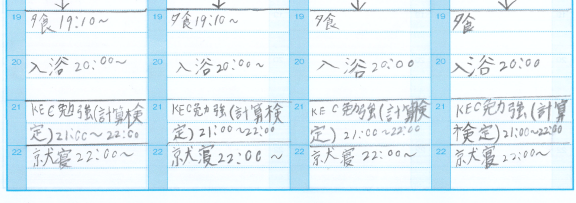 19 夕食 19:10~
20 入浴 20:00~
21 KEC勉強(計算検
定) 21:00~22:00
22 就寝 22:00~
19 夕食 19:10~
20 入浴 20:00~
21 KEC勉強(計算検
定) 21:00~22:00
22 就寝 22:00~
19 夕食
20 入浴 20:00
21 KEC勉強(計算検
定) 21:00~22:00
22 就寝 22:00~
19 夕食
20 入浴 20:00
21 KEC勉強(計算
検定) 21:00~22:00
22 就寝 22:00~